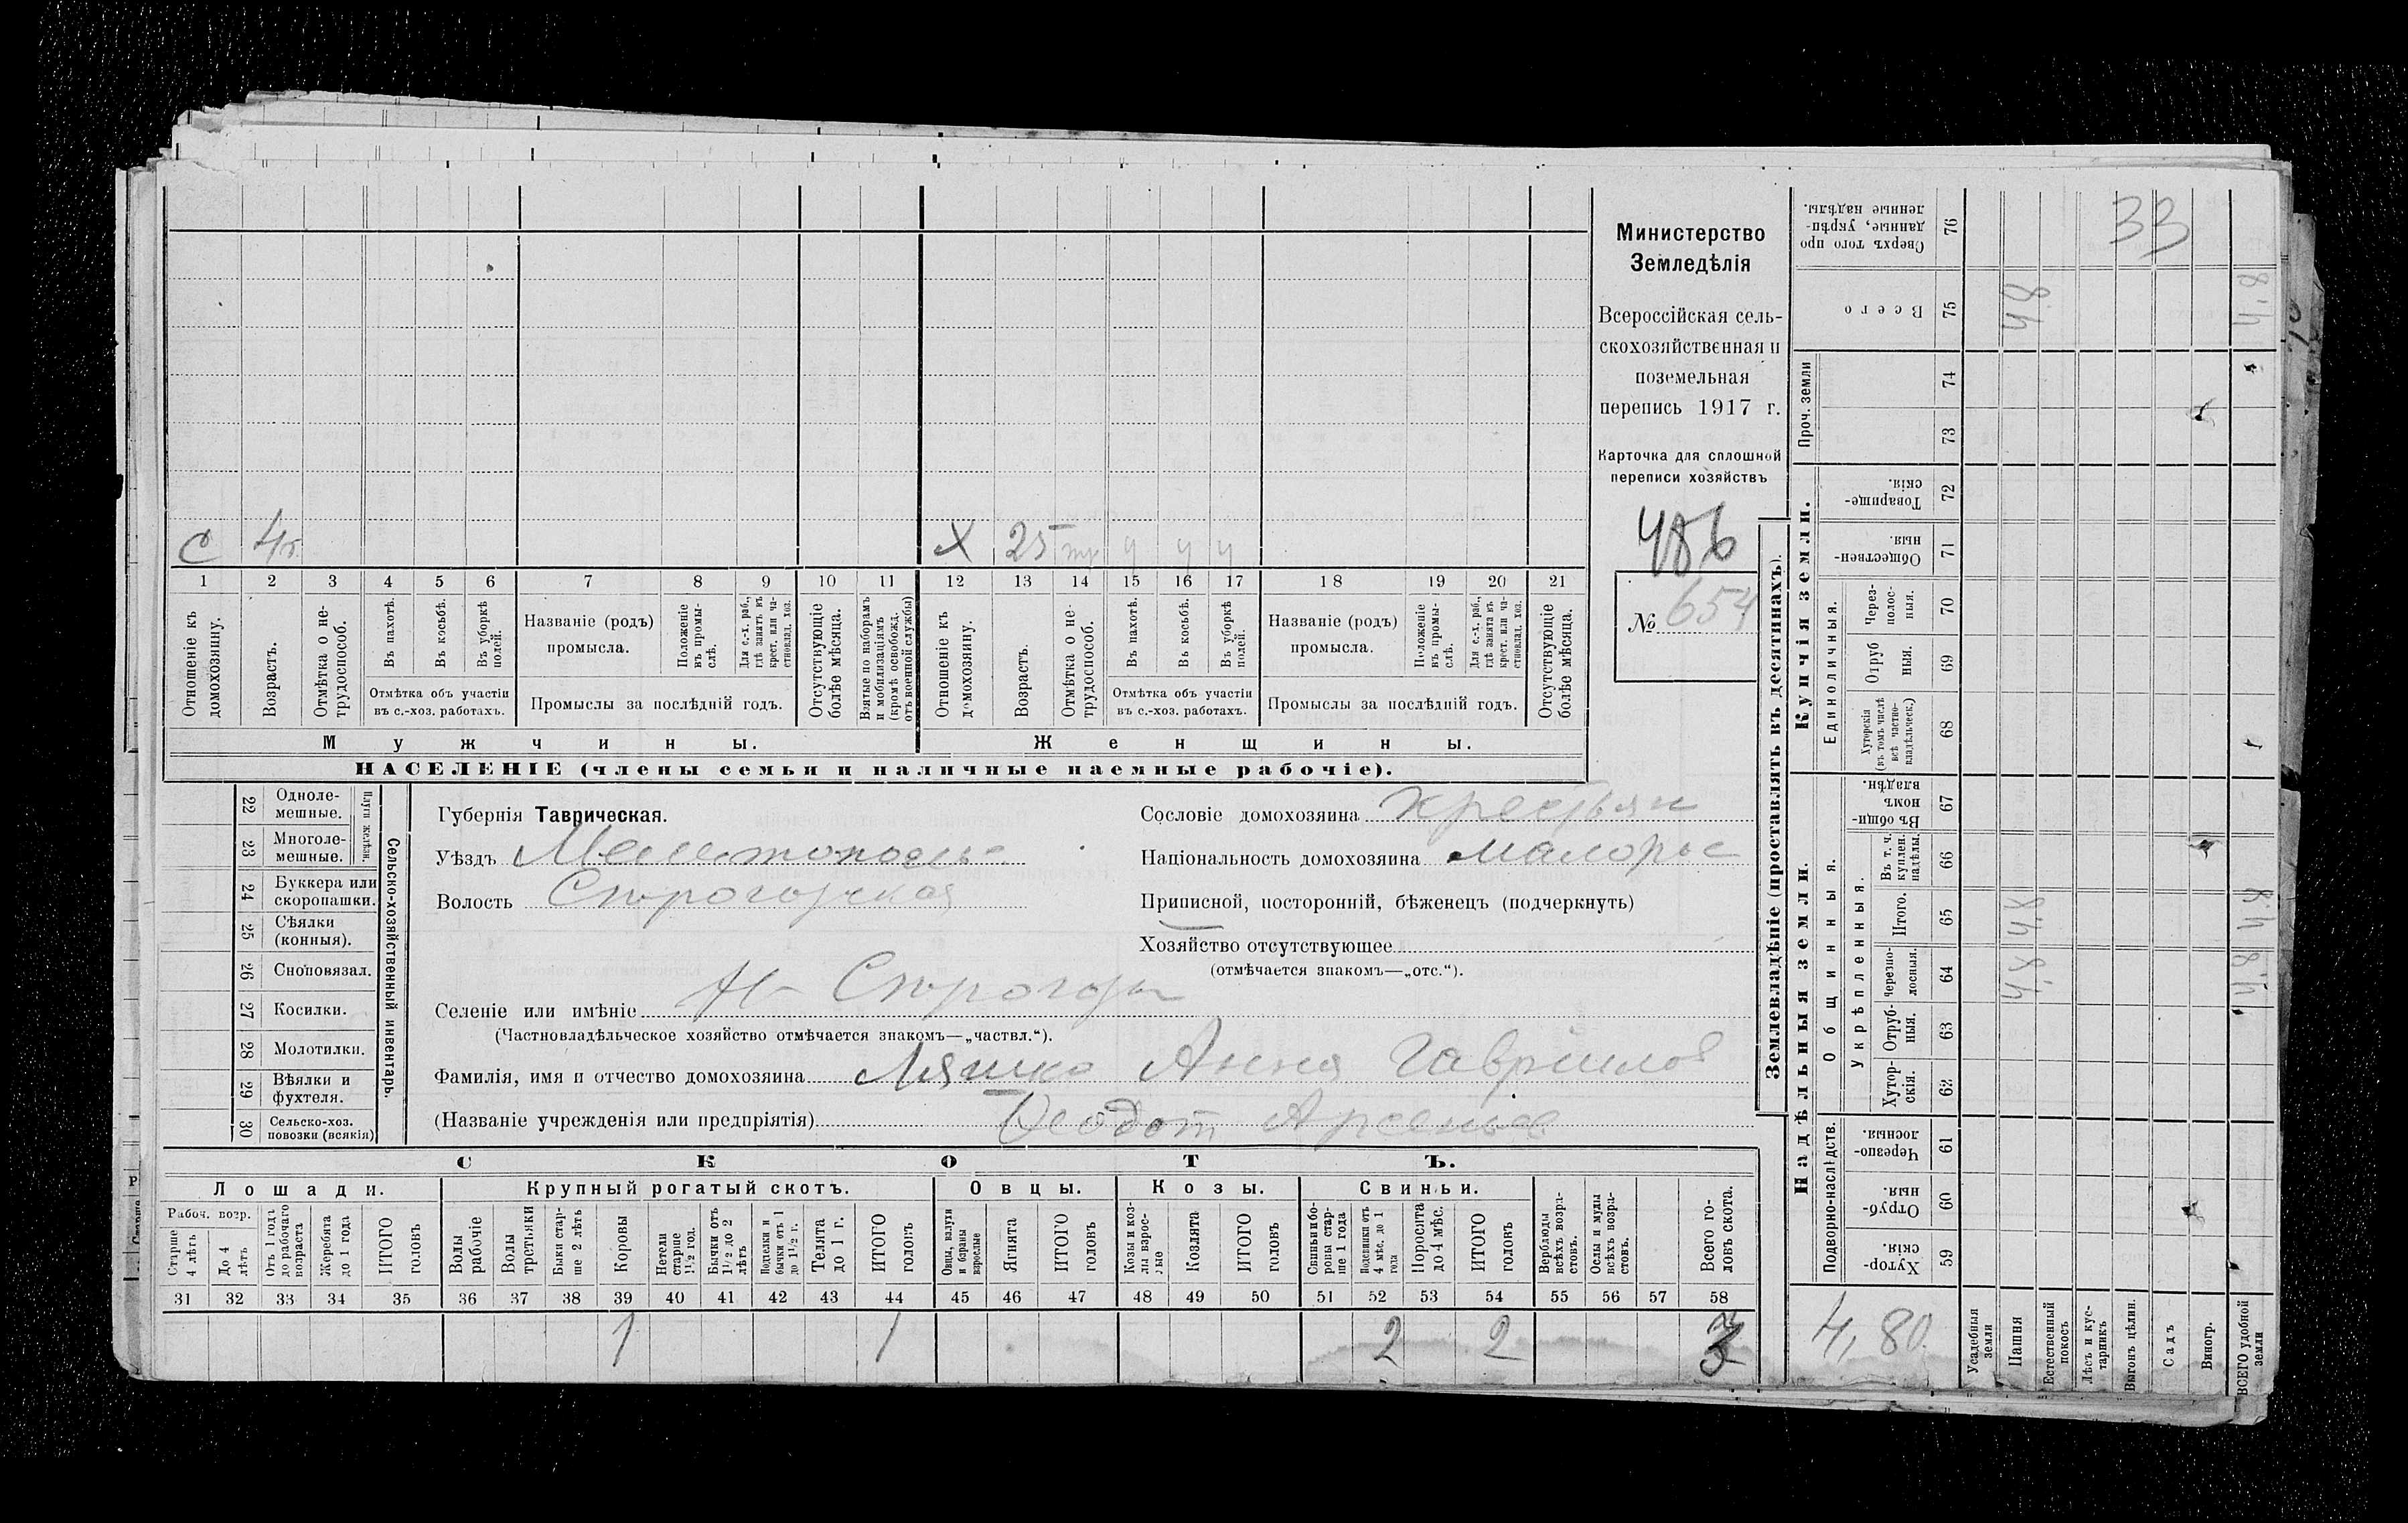 33
С 4 Х 25
1 2 3 4 5 6 7 8 9 10 11 12 13 14 15 16 17 18 19 20 21
Отношеніе къ домохозяину.
Возрастъ.
Отмѣтка о не-
трудоспособ.
Въ пахотѣ.
Въ косьбѣ.
Въ уборкѣ
полей.
Отмѣтка объ участіи
въ с.-хоз. работахъ.
Названіе (родъ)
промысла.
Положеніе
въ промы-
слѣ.
Для с.-х. раб.,
гдѣ занятъ въ
крест. или ча-
стновлад. хоз.
Промыслы за послѣдній годъ.
Отсутствующіе
болѣе мѣсяца.
Взятые по наборамъ
и мобилизаціямъ
(кромѣ освобожд.
отъ военной службы)
Отношеніе къ
домохозяину.
Возрастъ.
Отмѣтка о не-
трудоспособ.
Въ пахотѣ.
Въ косьбѣ.
Въ уборкѣ
полей.
Отмѣтка объ участіи
въ с.-хоз. работахъ.
Названіе (родъ)
промысла.
Положеніе
въ промы-
слѣ.
Для с.-х. раб.,
гдѣ занята въ
крест. или ча-
стновлад. хоз.
Промыслы за послѣдній годъ.
Отсутствующіе
болѣе мѣсяца.
Мужчины.
Женщины.
НАСЕЛЕНІЕ (члены семьи и наличные наемные рабочіе).
Министерство
Земледѣлія
Всероссійская сель-
скохозяйственная и
поземельная
перепись 1917 г.
Карточка для сплошной
переписи хозяйствъ
486
№ 654
22 Одноле-
мешные.
23 Многоле-
мешные.
Плуги желѣзн.
24 Буккера или
скоропашки.
25 Сѣялки
(конныя).
26 Сноповязал.
27 Косилки.
28 Молотилки.
29 Вѣялки и
фухтеля.
30 Сельско-хоз.
повозки (всякія)
Сельско-хозяйственный инвентарь.
Губернія Таврическая.
Уѣздъ Мелитопольс
Волость Сирогозская
Селеніе или имѣніе Н Сирогозы
(Частновладѣльческое хозяйство отмѣчается знакомъ—„частвл.“).
Фамилія, имя и отчество домохозяина Ляшко Анна Гаврилов
(Названіе учрежденія или предпріятія) Феодот Арсеньев
Сословіе домохозяина крестьян
Національность домохозяина малорос
Приписной, посторонній, бѣженецъ (подчеркнуть)
Хозяйство отсутствующее
(отмѣчается знакомъ—„отс.“).
СКОТЪ.
Лошади.
Рабоч. возр.
Старше
4 лѣтъ
До 4
лѣтъ
Отъ 1 года
до рабочаго
возраста
Жеребята
до 1 года
ИТОГО
головъ
Крупный рогатый скотъ.
Волы
рабочіе
Волы
третьяки
Быки стар-
ше 2 лѣтъ
Коровы
Нетели
старше
1½ год.
Бычки отъ
1½ до 2
лѣтъ
Подтелки и
бычки отъ 1
до 1½ г.
Телята
до 1 г.
ИТОГО
головъ
Овцы.
Овцы, валухи
и бараны
взрослые
Ягнята
ИТОГО
головъ
Козы.
Козы и коз-
лы взрос-
лые
Козлята
ИТОГО
головъ
Свиньи.
Свиньи и бо-
ровы стар-
ше 1 года
Подсвинки отъ
4 мѣс. до 1
года
Поросята
до 4 мѣс.
ИТОГО
головъ
Верблюды
всѣхъ возра-
стовъ.
Ослы и мулы
всѣхъ возра-
стовъ.
Всего го-
ловъ скота.
31 32 33 34 35 36 37 38 39 40 41 42 43 44 45 46 47 48 49 50 51 52 53 54 55 56 57 58
1 1 2 2 3
Землевладѣніе (проставлять въ десятинахъ).
Надѣльныя земли.
Купчія земли.
Проч. земли
Подворно-наслѣдств.
Общинныя.
Укрѣпленныя.
Единоличныя.
Сверхъ того про
данные, укрѣп-
ленные надѣлы. 76
Всего 75
74
73
Товарище-
скія. 72
Обществен-
ныя. 71
Через-
полос-
ныя. 70
Отруб
ныя. 69
Хуторскія
(въ томъ числѣ
всѣ частно-
владѣльческ.) 68
Въ общи-
номъ
владѣн. 67
Въ т. ч.
куплен.
надѣлы. 66
Итого. 65
Черезпо-
лосныя. 64
Отруб-
ныя. 63
Хутор-
скія. 62
Черезпо-
лосныя. 61
Отруб-
ныя. 60
Хутор-
скія. 59
4,8 4,8
4,8 4,8
4,8 4,8
4,80
Усадебныя
земли
Пашня
Естественный
покосъ
Лѣсъ и кус-
тарникъ
Выгонъ цѣлин.
Садъ
Виногр.
ВСЕГО удобной
земли